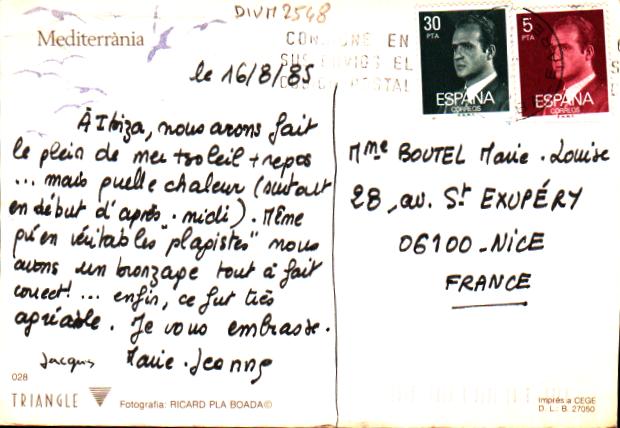 DIVM2548
Mediterrània
CON EN
SUS ENVIOS EL
POSTAL
30
PTA
ESPAÑA
CORREOS
5
PTA
ESPAÑA
CORREOS
le 16/8/85
À Ibiza, nous avons fait
le plein de mer + soleil + repos
... mais quelle chaleur (surtout
en début d'après-midi). Même
qu'en véritables "plagistes" nous
avons un bronzage tout à fait
correct! ... enfin, ce fut très
agréable. Je vous embrasse.
Jacques Marie-Jeanne
Mme BOUTEL Marie-Louise
28, av. St EXUPÉRY
06100 - NICE
FRANCE
028
TRIANGLE
Fotografia: RICARD PLA BOADA©
Imprés a CEGE
D. L.: B. 27050